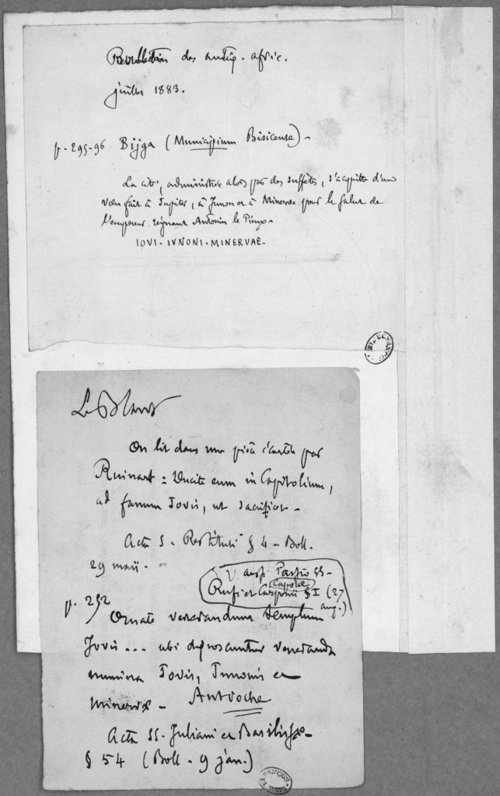 Bulletin des antiq. afric.
juillet 1883.
p. 295-96 Bijga (Municipium Bisicense) -
La cité, administrée alors par des suffètes, s'acquitte d'un
vœu fait à Jupiter, à Junon et à Minerve pour le salut de
l'empereur régnant Antonin le Pieux.
IOVI. IVNONI. MINERVAE.
Le Blant
On lit dans une pièce écartée par
Ruinart : Ducite eum in Capitolium,
ad fanum Jovis, ut sacrificet -
Acta S. Restituti § 4 - Boll.
29 maii. -
V. aussi Passio SS.
Rufi et Carponii § I (27
aug.)
p. 252
Ornate venerandum templum
Jovis ... ubi veneranda
numina Jovis, Junonis et
Minervæ - Antioche
Acta SS. Juliani et Basilissæ -
§ 54 (Boll. 9 jan.)